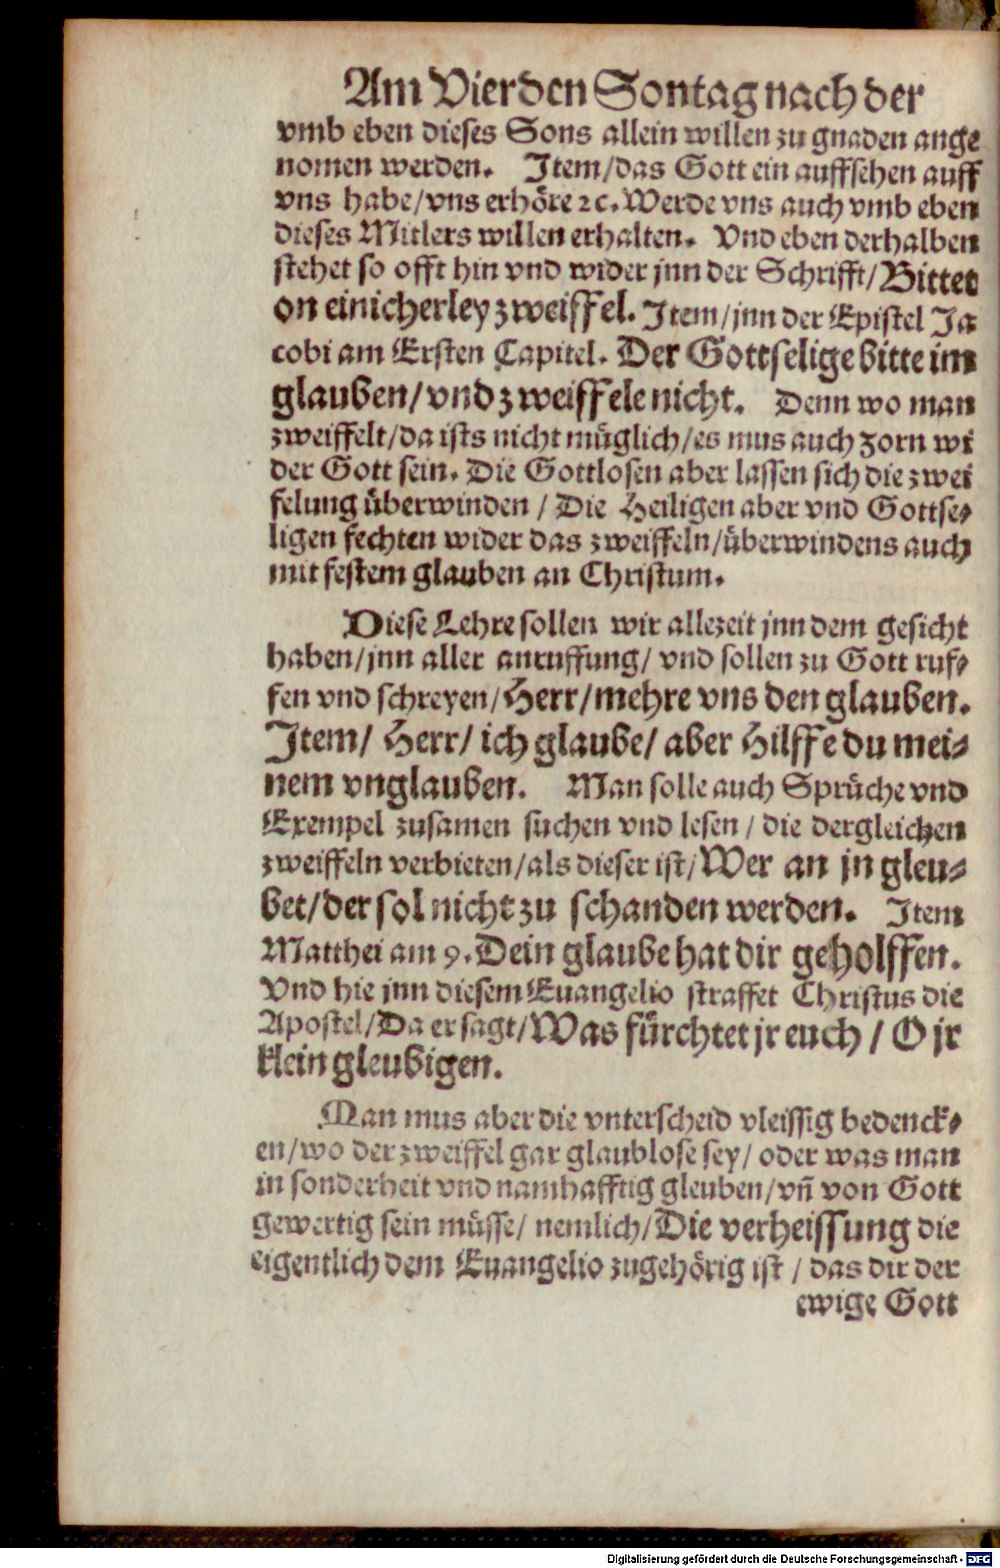 Am Vierden Sontag nach der
vmb eben dieses Sons allein willen zu gnaden ange
nomen werden. Item/das Gott ein auffsehen auff
vns habe/vns erhöre ꝛc. Werde vns auch vmb eben
dieses Mitlers willen erhalten. Vnd eben derhalben
stehet so offt hin vnd wider jnn der Schrifft/Bittet
on einicherley zweiffel. Item/jnn der Epistel Ja
cobi am Ersten Capitel. Der Gottselige bitte im
glauben/vnd zweiffele nicht. Denn wo man
zweiffelt/da ists nicht müglich/es mus auch zorn wi
der Gott sein. Die Gottlosen aber lassen sich die zwei
felung überwinden / Die Heiligen aber vnd Gottse-
ligen fechten wider das zweiffeln/überwindens auch
mit festem glauben an Christum.
Diese Lehre sollen wir allezeit jnn dem gesicht
haben/jnn aller anruffung/ vnd sollen zu Gott ruf-
fen vnd schreyen/Herr/mehre vns den glauben.
Item/ Herr/ ich glaube/ aber Hilffe du mei-
nem vnglauben. Man solle auch Sprüche vnd
Exempel zusamen suchen vnd lesen / die dergleichen
zweiffeln verbieten/als dieser ist/Wer an jn gleu-
bet/der sol nicht zu schanden werden. Item
Matthei am 9. Dein glaube hat dir geholffen.
Vnd hie jnn diesem Euangelio straffet Christus die
Apostel/Da er sagt/Was fürchtet jr euch / O jr
klein gleubigen.
Man mus aber die vnterscheid vleissig bedenck-
en/wo der zweiffel gar glaublose sey/ oder was man
in sonderheit vnd namhafftig gleuben/vñ von Gott
gewertig sein müsse/ nemlich/Die verheissung die
eigentlich dem Euangelio zugehörig ist / das dir der
ewige Gott
Digitalisierung gefördert durch die Deutsche Forschungsgemeinschaft - DFG